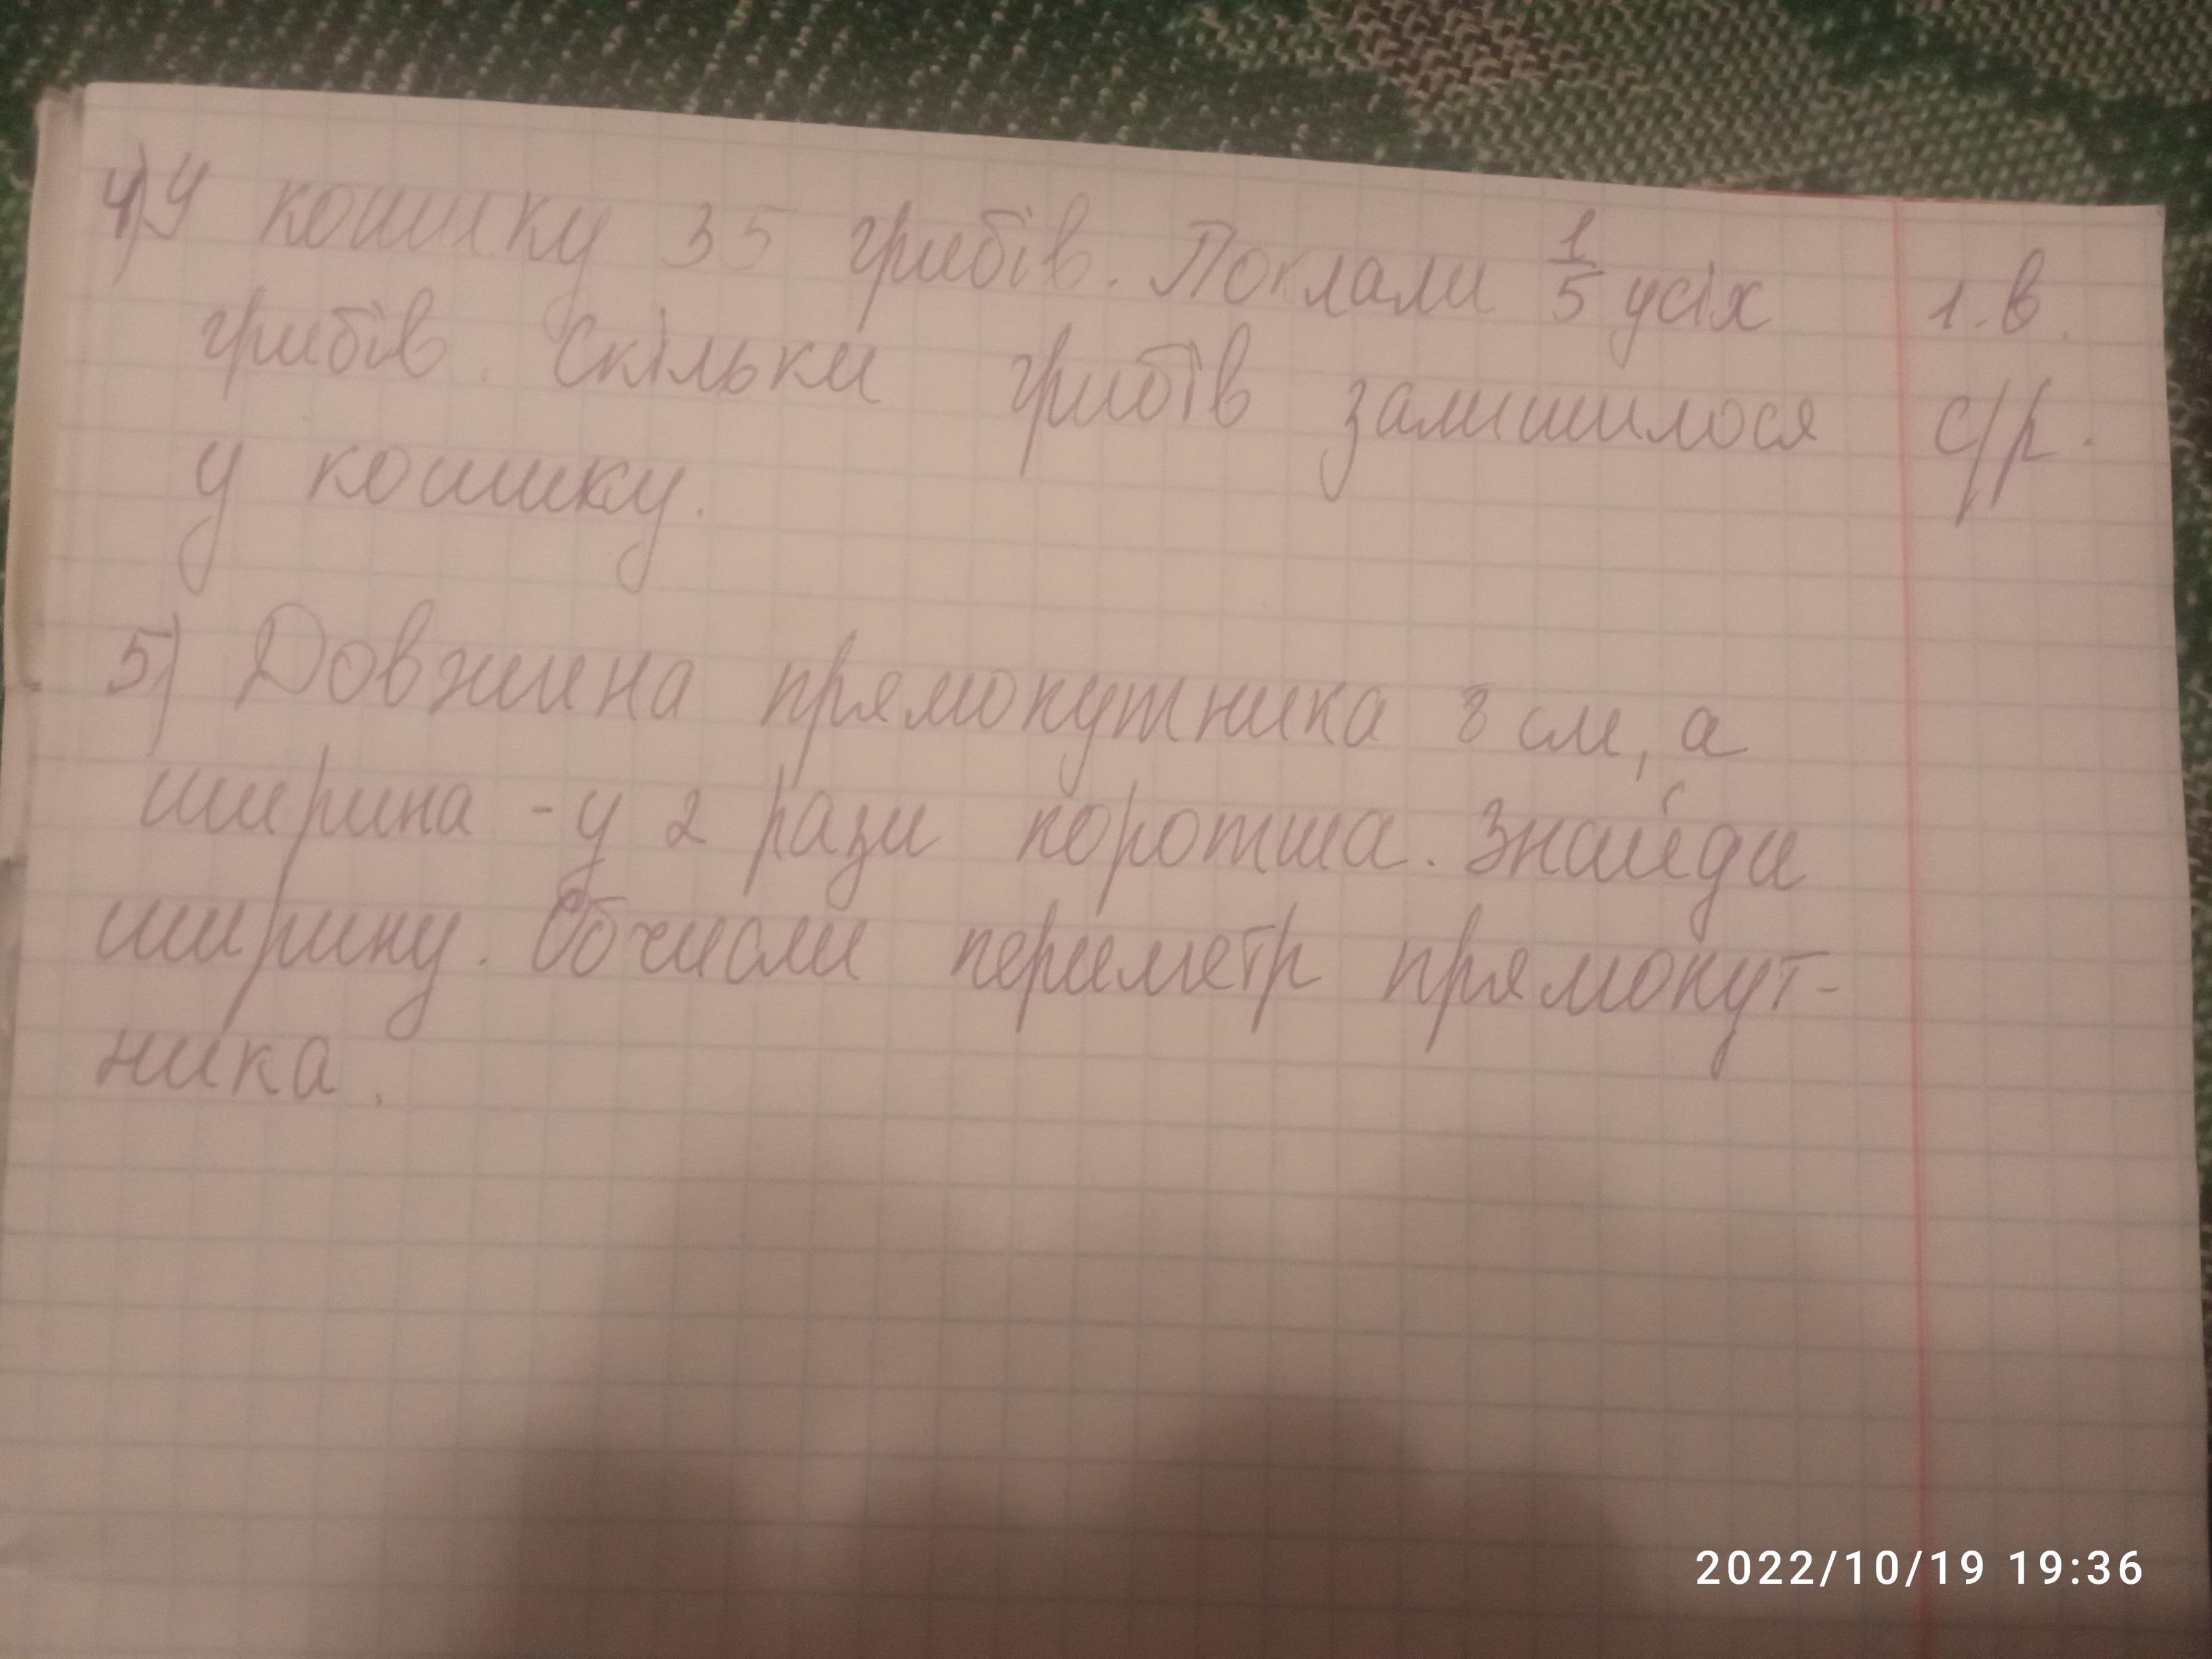 4) У кошику 35 грибів. Поклали 1/5 усіх 1.в.
грибів. Скільки грибів залишилося с/р.
у кошику.
5) Довжина прямокутника 8 см, а
ширина - у 2 рази коротша. Знайди
ширину. Обчисли периметр прямокут-
ника.
2022/10/19 19:36